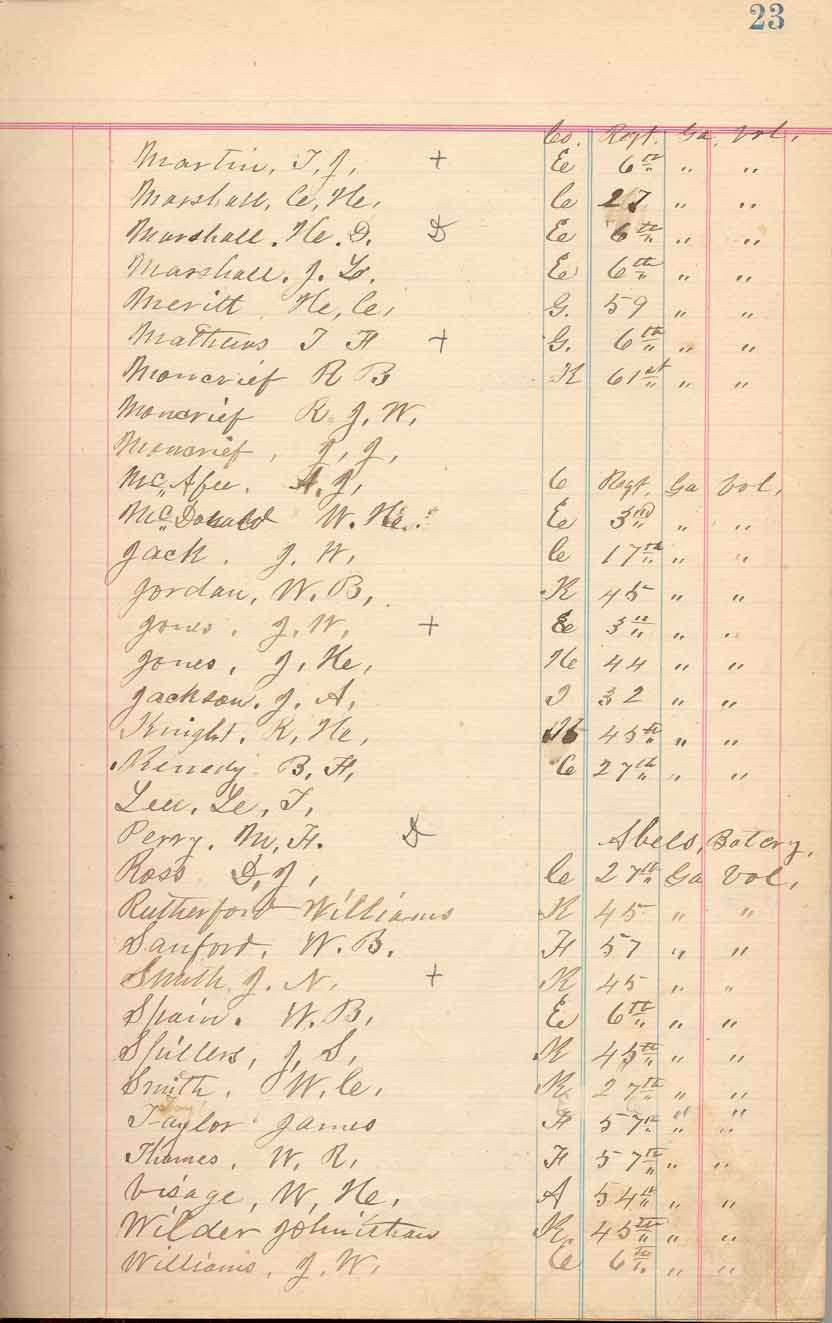 23
Co. Regt. Ga. Vol,
Martin, T, J, + E 6th " "
Marshall, C, H, C 27 " "
Marshall. H. D. D E 6th " "
Marshall. J. L. E 6th " "
Meritt H, C, G. 59 " "
Mathews J F + G. 6th " "
Moncrief R B K 61st " "
Moncrief R. J, W,
Moncrief, J, J,
McAfee. A. J, C Regt. Ga Vol,
McDonald W. H. E 3rd " "
Jack. J. W, C 17th " "
Jordan, W. B, K 45 " "
Jones, J, W, + E 3rd " "
Jones, J, H, H 44 " "
Jackson. J. A, I 32 " "
Knight. R, H, 45th " "
Kenedy B. F, C 27th " "
Lee, L, T,
Perry. M, F. D Abels, Batery,
Ross D, J, C 27th Ga Vol,
Rutherford Williams K 45 " "
Sanford, W. B. F 57 " "
Smith J. N, + K 45 " "
Spain. W. B, E 6th " "
Spillers, J, S, K 45th " "
Smith. W. C, K 27th " "
Taylor James F 57th " "
Thames, W, R, F 57th " "
Visage, W, H, A 54th " "
Wilder Johnithan K. 45th " "
Williams, J, W, C 6th " "